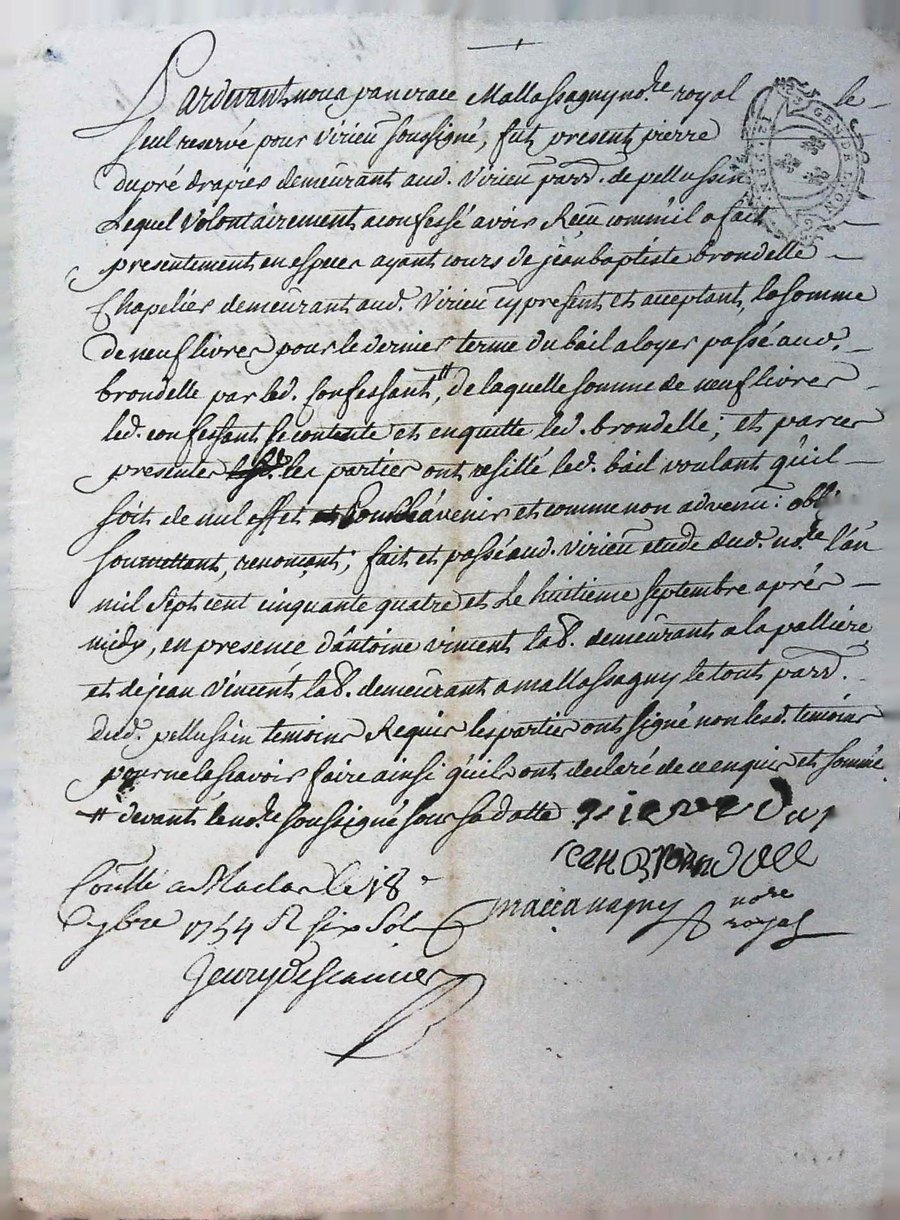 Pardevant nous pancrace Mallassagny no.re royal le
seul reservé pour Virieu soussigné, fut present pierre
dupré drapier demeurant aud. Virieu parr. de pellussin
Lequel Volontairement a confessé avoir Reçu comme il a fait
presentement en especes ayant cours de jean baptiste brondelle
Chapelier demeurant aud. Virieu cy present et acceptant, la somme
de neuf livres pour le dernier terme du bail a loyer passé aud.
brondelle par led. Confessant #, de laquelle somme de neuf livres
led. confessant se contente et en quitte led. brondelle; et par ces
presentes les parties ont resillé led. bail voulant qu'il
soit de nul effet a venir et comme non advenu: obl.
soumettant, renonçant; fait et passé aud. Virieu etude dud. no.re l'an
mil sept cent cinquante quatre et Le huitieme septembre aprés
midy, en presence d'antoine vincent lab. demeurant a la pallliére
et de jean Vincent lab. demeurant a mallassagny le tout parr.
dud. pellussin temoins Requis les parties ont signé non lesd. temoins
pour ne le scavoir faire ainsi qu'ils ont declaré de ce enquis et sommés
# devant le no.re soussigné sous sa datte pierre du
jean brondelle
mallassagny no.re
royal
Conllé a Maclas le 18
7bre 1754 R six sols
GEN DE LYON